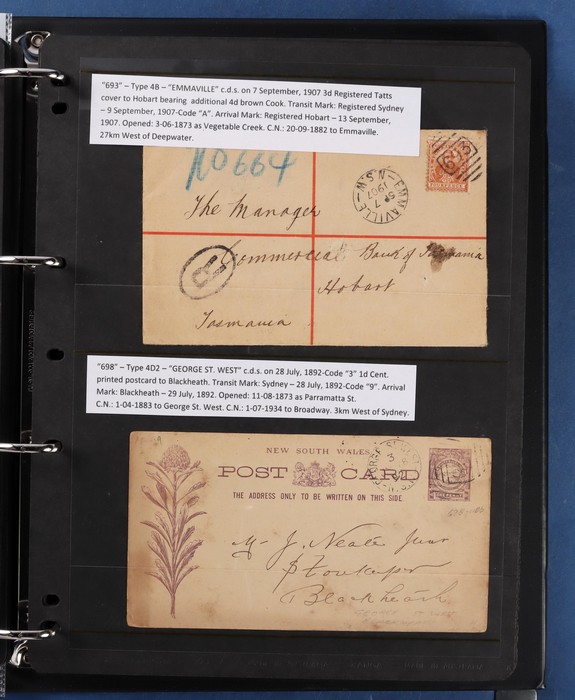 "693" – Type 4B – "EMMAVILLE" c.d.s. on 7 September, 1907 3d Registered Tatts
cover to Hobart bearing additional 4d brown Cook. Transit Mark: Registered Sydney
– 9 September, 1907-Code "A". Arrival Mark: Registered Hobart – 13 September,
1907. Opened: 3-06-1873 as Vegetable Creek. C.N.: 20-09-1882 to Emmaville.
27km West of Deepwater.
No 664
693
EMMAVILLE – N.S.W
7
SP
1907
The Manager
R
Commercial Bank of Tasmania
Hobart
Tasmania
"698" – Type 4D2 – "GEORGE ST. WEST" c.d.s. on 28 July, 1892-Code "3" 1d Cent.
printed postcard to Blackheath. Transit Mark: Sydney – 28 July, 1892-Code "9". Arrival
Mark: Blackheath – 29 July, 1892. Opened: 11-08-1873 as Parramatta St.
C.N.: 1-04-1883 to George St. West. C.N.: 1-07-1934 to Broadway. 3km West of Sydney.
NEW SOUTH WALES
POST CARD
THE ADDRESS ONLY TO BE WRITTEN ON THIS SIDE
Mr J. Neate Junr
Storekeeper
Blackheath